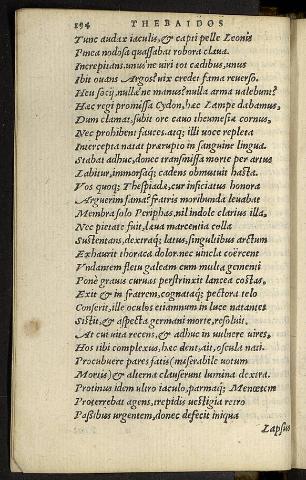 194 THEBAIDOS
Tunc audax iaculis, & capti pelle Leonis
Pinea nodosa quassabat robora claua.
Increpitans. unus'ne uiri tot cædibus, unus
Ibit ouans Argos? uix credet fama reuerso.
Heu socij, nullæ ne manus? nulla arma ualebunt?
Hæc regi promissa Cydon, hæc Lampe dabamus,
Dum clamat, subit ore cauo theumesia cornus,
Nec prohibent fauces. atq; illi uoce repleta
Intercepta natat prærupto in sanguine lingua.
Stabat adhuc, donec transmissa morte per artus
Labitur, immorsaq; cadens obmutuit hasta.
Vos quoq; Thespiadæ, cur inficiatus honora
Arguerim fama? fratris moribunda leuabat
Membra solo Periphas, nil indole clarius illa,
Nec pietate fuit, læua marcentia colla
Sustentans, dextraq; latus, singultibus arctum
Exhaurit thoraca dolor. nec uincla coërcent
Vndantem fletu galeam cum multa gementi
Ponè grauis curuas perstrinxit lancea costas,
Exit & in fratrem, cognataq; pectora telo
Conserit, ille oculos etiamnum in luce natantes
Sistit, & aspecta germani morte, resoluit.
At cui uita recens, & adhuc in uulnere uires,
Hos tibi complexus, hæc dent, ait, oscula nati.
Procubuere pares fatis (miserabile uotum
Mortis) & alterna clauserunt lumina dextra.
Protinus idem ultro iaculo, parmaq; Menœtem
Proterrebat agens, trepidis uestigia retro
Passibus urgentem, donec defecit iniqua
Lapsus